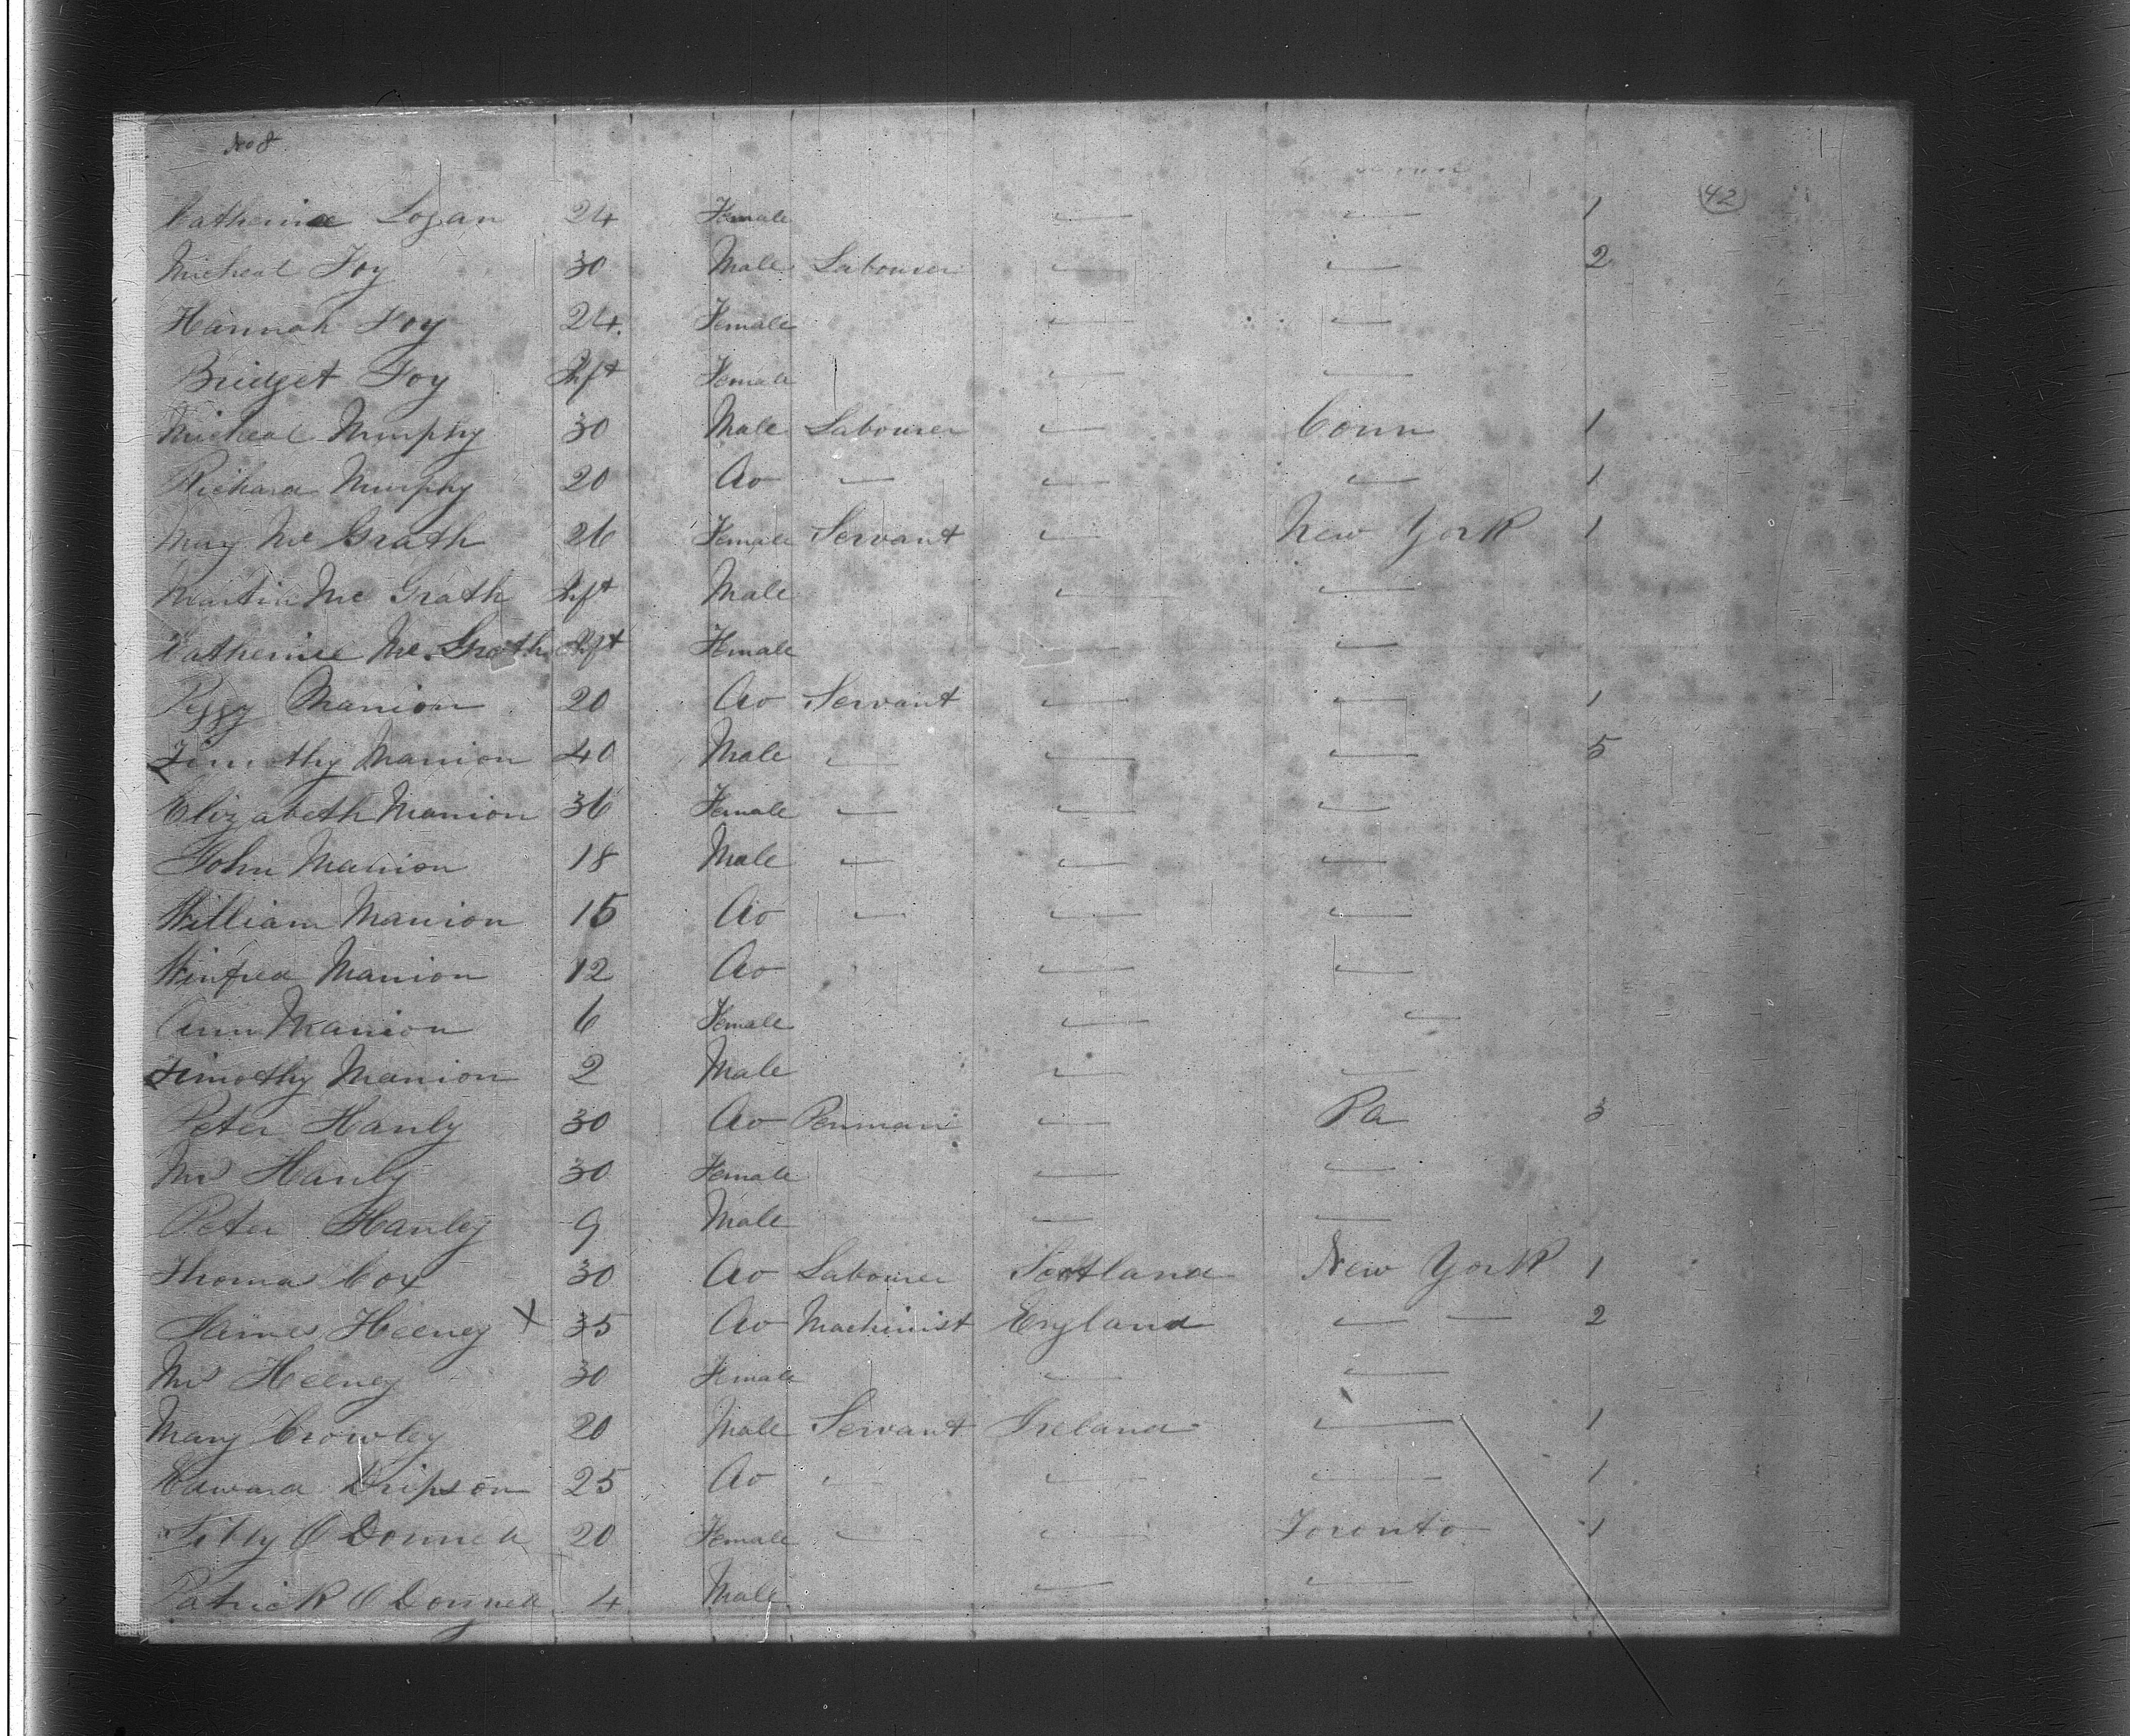 No 8
42
Catherine Logan 24 Female — — 1
Micheal Foy 30 Male Labourer — — 2
Hannah Foy 24. Female — —
Bridget Foy Inft Female — —
Micheal Murphy 30 Male Labourer — Conn 1
Richard Murphy 20 do — — — 1
May Mc Grath 26 Female Servant — New York 1
Martin Mc Grath Inft Male — —
Catherine Mc Grath Inft Female — —
Peggy Manion 20 do Servant — — 1
Timothy Manion 40 Male — — — 5
Elizabeth Manion 36 Female — — —
John Manion 18 Male — — —
William Manion 15 do — — —
Winfred Manion 12 do — —
Ann Manion 6 Female — —
Timothy Manion 2 Male — —
Peter Hanly 30 do Penman — Pa 3
Mrs Hanly 30 Female — —
Peter Hanley 9 Male — —
Thomas Cox 30 do Labourer Scotland New York 1
James Heeney X 35 do Machinist England — — 2
Mrs Heeney 30 Female — —
Mary Crowley 20 Male Servant Ireland — 1
Edward Dripson 25 do — — — 1
O Donnell 20 Female — — Toronto 1
Patrick O Donnell 4 Male — —